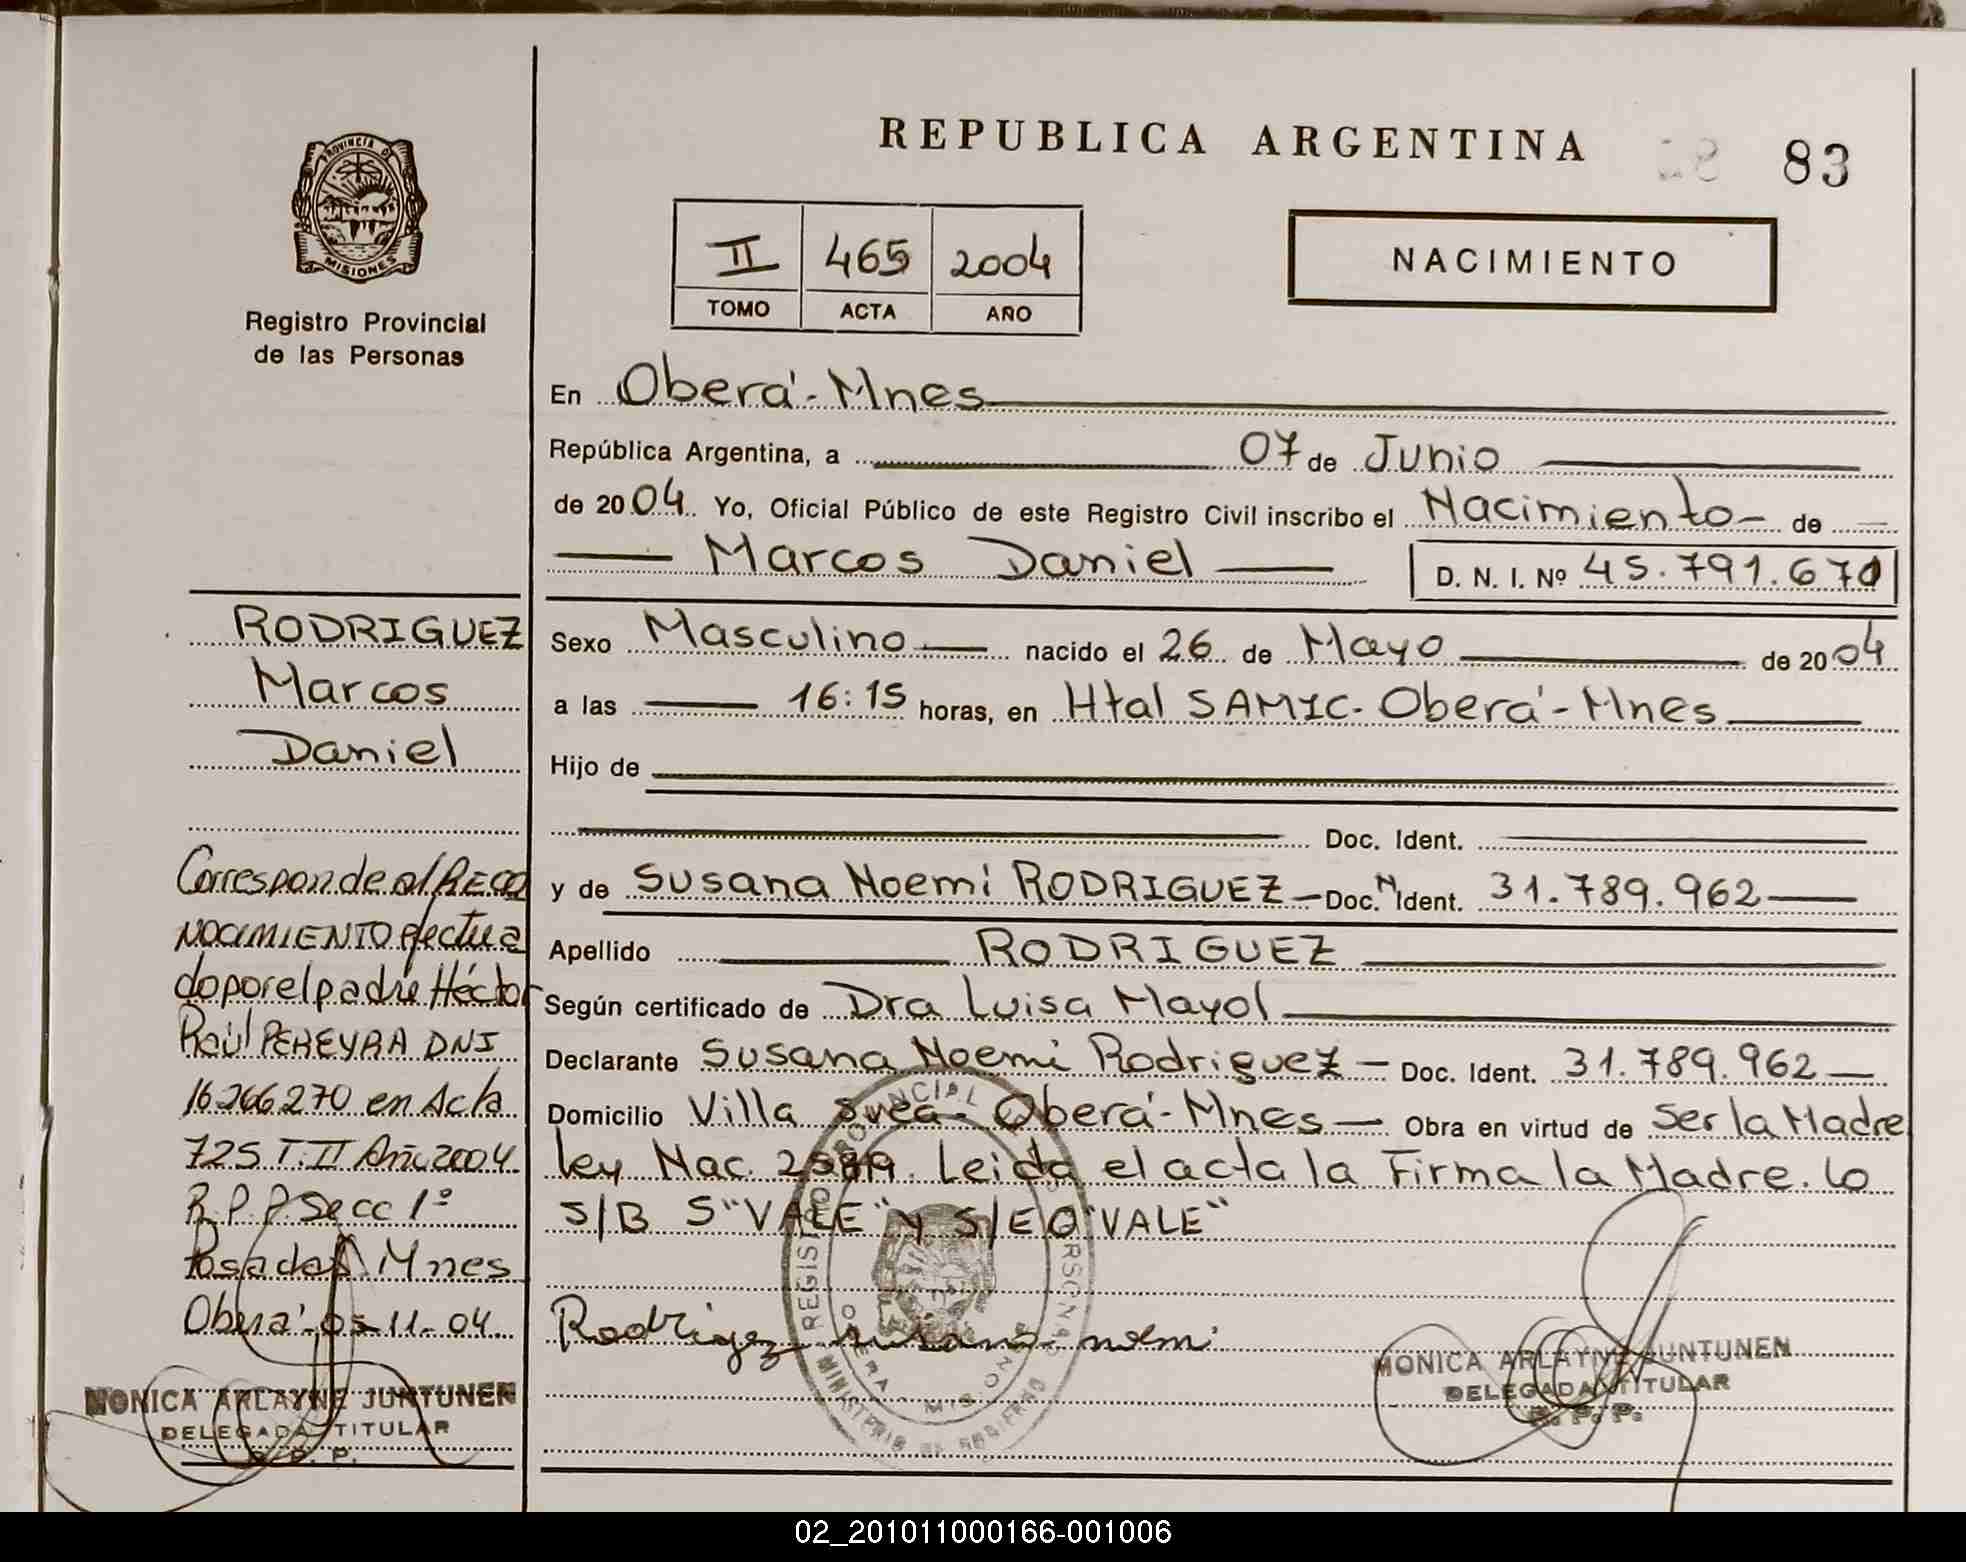 REPUBLICA ARGENTINA
83
PROVINCIA DE
MISIONES
Registro Provincial
de las Personas
II 465 2004
TOMO ACTA AÑO
NACIMIENTO
En Oberá - Mnes
República Argentina, a 07 de Junio
de 2004 Yo, Oficial Público de este Registro Civil inscribo el Nacimiento - de
Marcos Daniel D. N. I. Nº 45.791.671
Sexo Masculino nacido el 26 de Mayo de 2004
a las 16:15 horas, en Htal SAMIC - Oberá - Mnes
Hijo de
Doc. Ident.
y de Susana Noemi RODRIGUEZ - Doc. N Ident. 31.789.962
Apellido RODRIGUEZ
Según certificado de Dra Luisa Mayol
Declarante Susana Noemi Rodriguez - Doc. Ident. 31.789.962
Domicilio Villa Svea - Oberá - Mnes - Obra en virtud de Ser la Madre
ley Nac. Leida el acta la Firma la Madre. Lo
S/B S "VALE" y S/E O "VALE"
Rodriguez susana noemi
MONICA ARLAYNE JUNTUNEN
DELEGADA TITULAR
R. P. P.
RODRIGUEZ
Marcos
Daniel
Corresponde al RECO
NOCIMIENTO efectua
do por el padre Héctor
Raúl PEREYRA DNI
16266270 en Acta
725 T. II Año 2004
R.P.P Secc 1º
Posadas Mnes
Oberá 05-11-04
MONICA ARLAYNE JUNTUNEN
DELEGADA TITULAR
R. P. P.
02_201011000166-001006